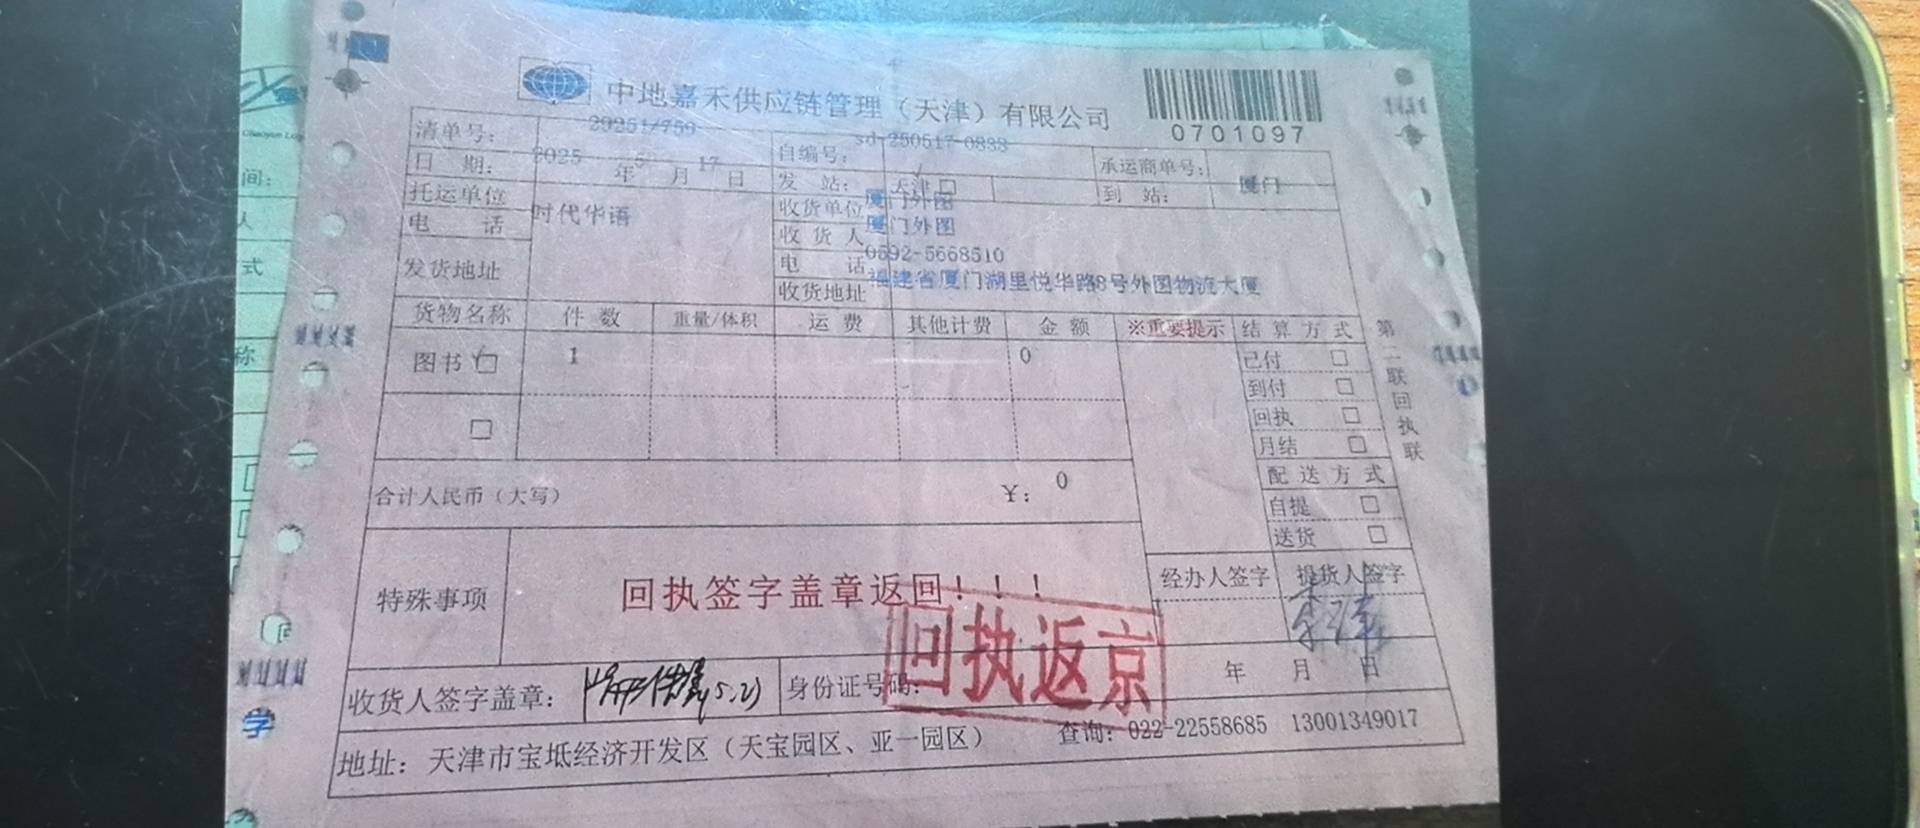 中地嘉禾供应链管理（天津）有限公司
0701097
清单号： 20251/759 自编号： sd-250517-0833 承运商单号：
日 期： 2025 年 5 月 17 日 发 站： 天津 □ 到 站： 厦门
托运单位 时代华语 收货单位 厦门外图
电 话 收 货 人 厦门外图
电 话 0592-5668510
发货地址 收货地址 福建省厦门湖里悦华路8号外图物流大厦
货物名称 件 数 重量/体积 运 费 其他计费 金 额 ※重要提示 结 算 方 式
图书 □ 1 0 已付 □
到付 □
回执 □
□ 月结 □
配 送 方 式
合计人民币（大写） ￥： 0 自提 □
送货 □
第二联回执联
特殊事项 回执签字盖章返回！！！ 经办人签字 提货人签字
回执返京
收货人签字盖章： 5.21 身份证号码： 年 月 日
地址：天津市宝坻经济开发区（天宝园区、亚一园区） 查询：022-22558685 13001349017
间：
人
式
称
学